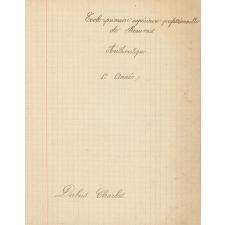 Ecole primaire supérieure professionnelle
de Beauvais
Arithmétique
1e Année
Charles